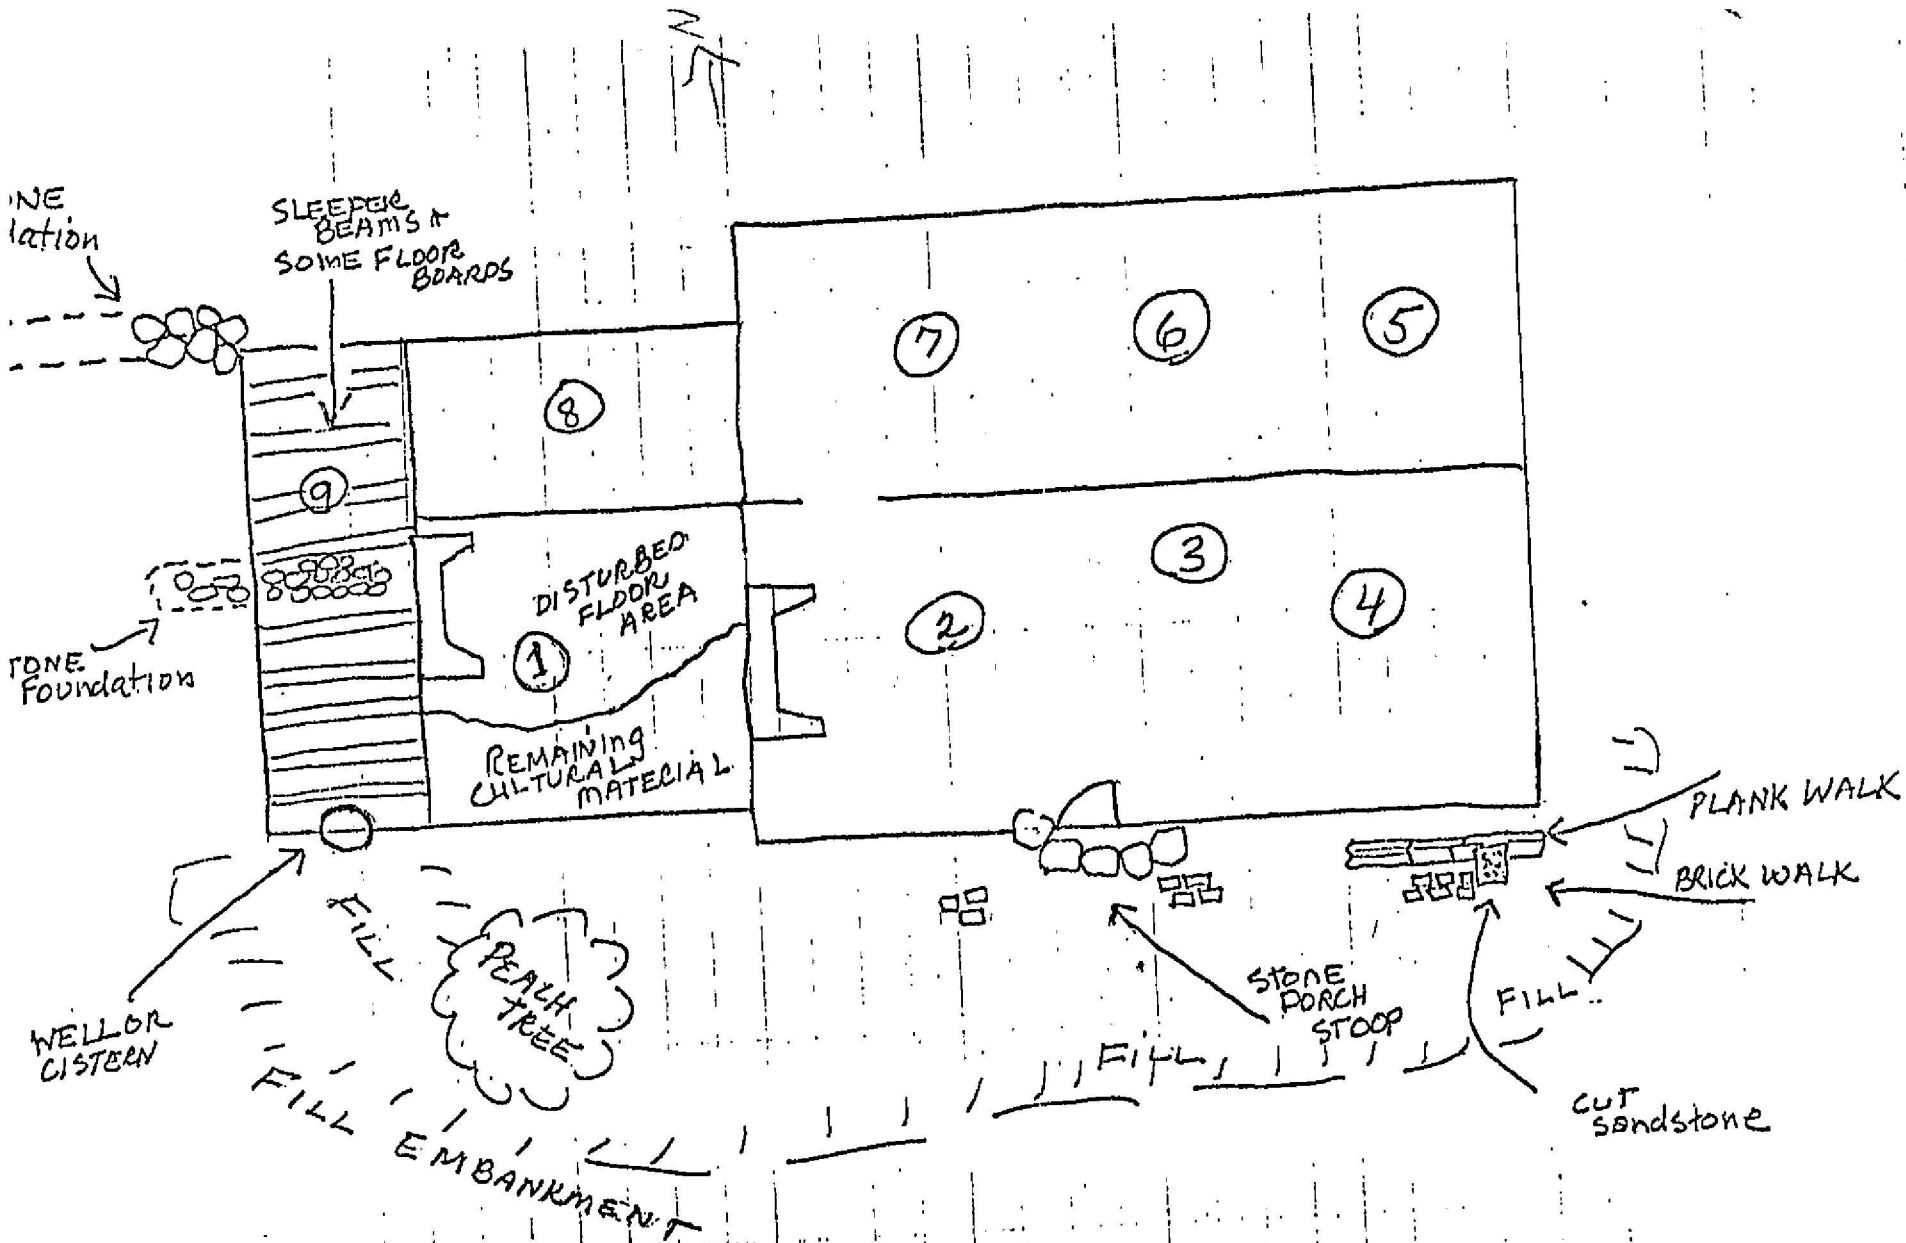 N
NE
lation
SLEEPER
BEAMS &
SOME FLOOR
BOARDS
7
6
5
8
9
3
DISTURBED
FLOOR
AREA
2
4
1
TONE
Foundation
REMAINING
CULTURAL
MATERIAL
PLANK WALK
BRICK WALK
FILL
PEACH
TREE
STONE
PORCH
STOOP
FILL
WELL OR
CISTERN
FILL
FILL EMBANKMENT
CUT
Sandstone